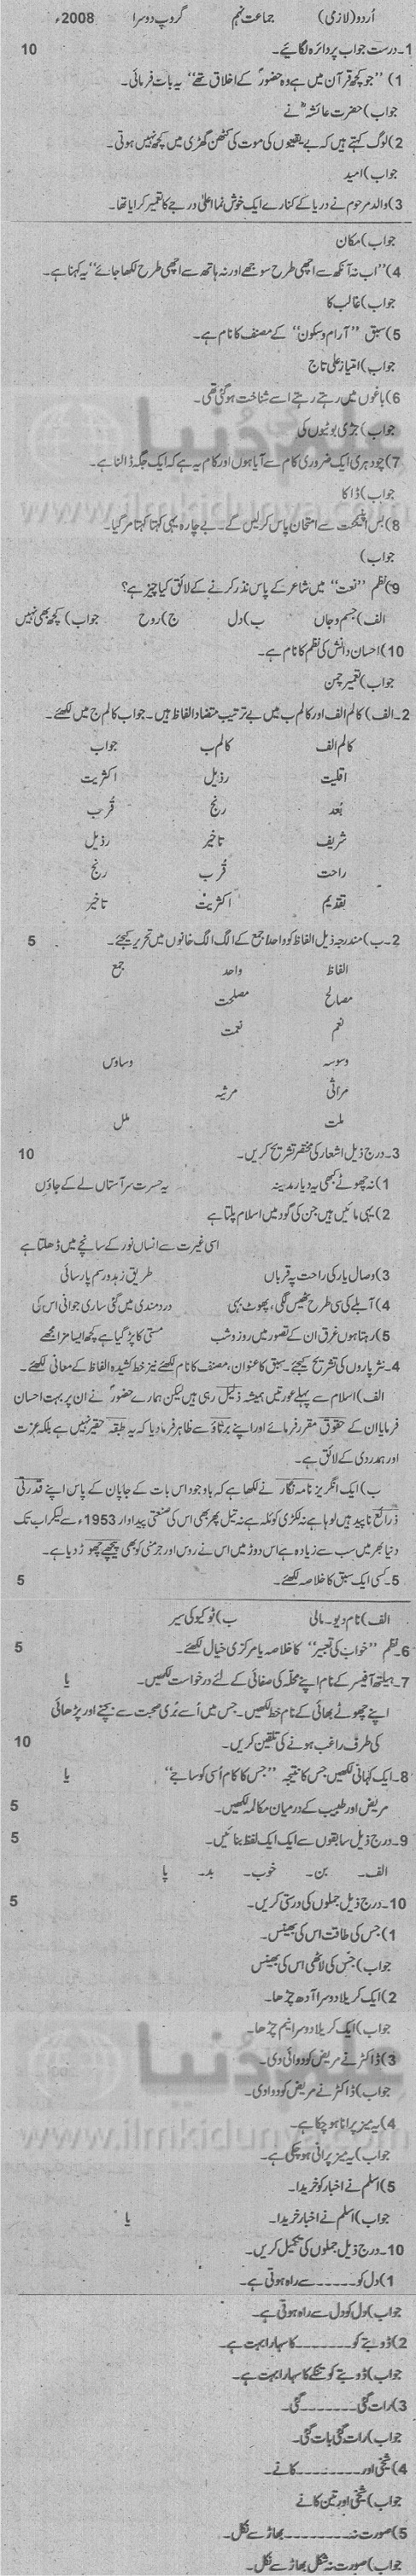 اُردو (لازمی) جماعت نہم گروپ دوسرا 2008ء
1۔ درست جواب پر دائرہ لگائیے۔ 10
1) ''جو کچھ قرآن میں ہے وہ حضورؐ کے اخلاق تھے'' یہ بات فرمائی۔
جواب) حضرت عائشہؓ نے
2) لوگ کہتے ہیں کہ بے یقینوں کی موت کی کٹھن گھڑی میں کچھ نہیں ہوتی۔
جواب) امید
3) والد مرحوم نے دریا کے کنارے ایک خوش نما اعلیٰ درجے کا تعمیر کرایا تھا۔
جواب) مکان
4) ''اب نہ آنکھ سے اچھی طرح سوجھے اور نہ ہاتھ سے اچھی طرح لکھا جائے'' یہ کہنا ہے۔
جواب) غالب کا
5) سبق ''آرام و سکون'' کے مصنف کا نام ہے۔
جواب) امتیاز علی تاج
6) باغوں میں رہتے رہتے اسے شناخت ہو گئی تھی۔
جواب) جڑی بوٹیوں کی
7) چودہری ایک ضروری کام سے آیا ہوں اور کام یہ ہے کہ ایک جگہ ڈالنا ہے۔
جواب) ڈاکا
8) بس سے امتحان پاس کر لیں گے۔ بے چارہ یہی کہتا کہتا مر گیا۔
جواب)
9) نظم ''نعت'' میں شاعر کے پاس نذر کرنے کے لائق کیا چیز ہے؟
الف) جسم و جاں ب) دل ج) روح جواب) کچھ بھی نہیں
10) احسان دانش کی نظم کا نام ہے۔
جواب) تعمیر چمن
2۔ الف) کالم الف اور کالم ب میں بے ترتیب متضاد الفاظ ہیں۔ جواب کالم ج میں لکھئے۔
کالم الف کالم ب جواب
اقلیت رذیل اکثریت
بُعد رنج قُرب
شریف تاخیر رذیل
راحت قُرب رنج
تقدیم اکثریت تاخیر
2۔ ب) مندرجہ ذیل الفاظ کو واحد/جمع کے الگ الگ خانوں میں تحریر کیجئے۔ 5
الفاظ واحد جمع
مصالح مصلحت
نعم نعمت
وسوسہ وساوس
مراثی مرثیہ
ملت ملل
3۔ درج ذیل اشعار کی مختصر تشریح کریں۔ 10
1) نہ چھوٹے کبھی یہ دیار مدینہ یہ حسرت سر آستاں لے کے جاؤں
2) یہی مائیں ہیں جن کی گود میں اسلام پلتا ہے
اسی غیرت سے انساں نور کے سانچے میں ڈھلتا ہے
3) وصال یار کی راحت پہ قرباں طریق زہد و رسم پارسائی
4) آبلے کی سی طرح ٹھیس لگی، پھوٹ بہی دردمندی میں گئی ساری جوانی اس کی
5) رہتا ہوں غرق ان کے تصور میں روز و شب مستی کا پڑ گیا ہے کچھ ایسا مزا مجھے
4۔ نثر پاروں کی تشریح کیجئے۔ سبق کا عنوان، مصنف کا نام لکھئے نیز خط کشیدہ الفاظ کے معانی لکھئے۔
الف) اسلام سے پہلے عورتیں ہمیشہ ذلیل رہی ہیں لیکن ہمارے حضورؐ نے ان پر بہت احسان
فرمایا ان کے حقوق مقرر فرمائے اور اپنے برتاؤ سے ظاہر فرما دیا کہ یہ طبقہ حقیر نہیں ہے بلکہ عزت
اور ہمدردی کے لائق ہے۔
ب) ایک انگریز نامہ نگار نے لکھا ہے کہ باوجود اس بات کے جاپان کے پاس اپنے قدرتی
ذرائع ناپید ہیں لوہا ہے نہ لکڑی کوئلہ ہے نہ تیل پھر بھی اس کی صنعتی پیداوار 1953ء سے لیکر اب تک
دنیا بھر میں سب سے زیادہ ہے اس دوڑ میں اس نے روس اور جرمنی کو بھی پیچھے چھوڑ دیا ہے۔
5۔ کسی ایک سبق کا خلاصہ لکھئے۔ 5
الف) نام دیو۔ مالی ب) ٹوکیو کی سیر
6۔ نظم ''خواب کی تعبیر'' کا خلاصہ یا مرکزی خیال لکھئے۔ 5
7۔ ہیلتھ آفیسر کے نام اپنے محلہ کی صفائی کے لئے درخواست لکھیں۔ یا
اپنے چھوٹے بھائی کے نام خط لکھیں۔ جس میں اُسے بُری صحبت سے بچنے اور پڑھائی
کی طرف راغب ہونے کی تلقین کریں۔ 10
8۔ ایک کہانی لکھیں جس کا نتیجہ ''جس کا کام اُسی کو ساجھے'' یا
مریض اور طبیب کے درمیان مکالمہ لکھیں۔ 5
9۔ درج ذیل سابقوں سے ایک ایک لفظ بنائیں۔ 5
الف۔ بن۔ خوب۔ بد۔ پا
10۔ درج ذیل جملوں کی درستی کریں۔ 5
1) جس کی طاقت اس کی بھینس۔
جواب) جس کی لاٹھی اس کی بھینس
2) ایک کریلا دوسرا آدھ چڑھا۔
جواب) ایک کریلا دوسرا نیم چڑھا۔
3) ڈاکٹر نے مریض کو دوائی دی۔
جواب) ڈاکٹر نے مریض کو دوا دی۔
4) یہ میز پرانا ہو چکا ہے۔
جواب) یہ میز پرانی ہو چکی ہے۔
5) اسلم نے اخبار کو خریدا۔
جواب) اسلم نے اخبار خریدا۔ یا
10۔ درج ذیل جملوں کی تکمیل کریں۔
1) دل کو ----- سے راہ ہوتی ہے۔
جواب) دل کو دل سے راہ ہوتی ہے۔
2) ڈوبتے کو ------- کا سہارا بہت ہے۔
جواب) ڈوبتے کو تنکے کا سہارا بہت ہے۔
3) رات گئی ------- گئی۔
جواب) رات گئی بات گئی۔
4) شیخی اور -------- کانے۔
جواب) شیخی اور تین کانے
5) صورت نہ -------- بھاڑ سے نکل۔
جواب) صورت نہ شکل بھاڑ سے نکل۔
www.ilmkidunya.com
www.ilmkidunya.com